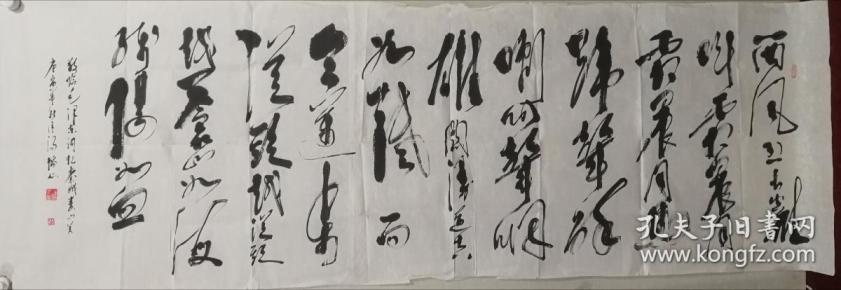 西风烈长空雁
叫霜晨月
霜晨月马
蹄声碎
喇叭声咽
雄关漫道真
如铁而
今迈步
从头越从头
越苍山如海
残阳如血
毛泽东词忆秦娥娄山关
孔夫子旧书网
www.kongfz.com